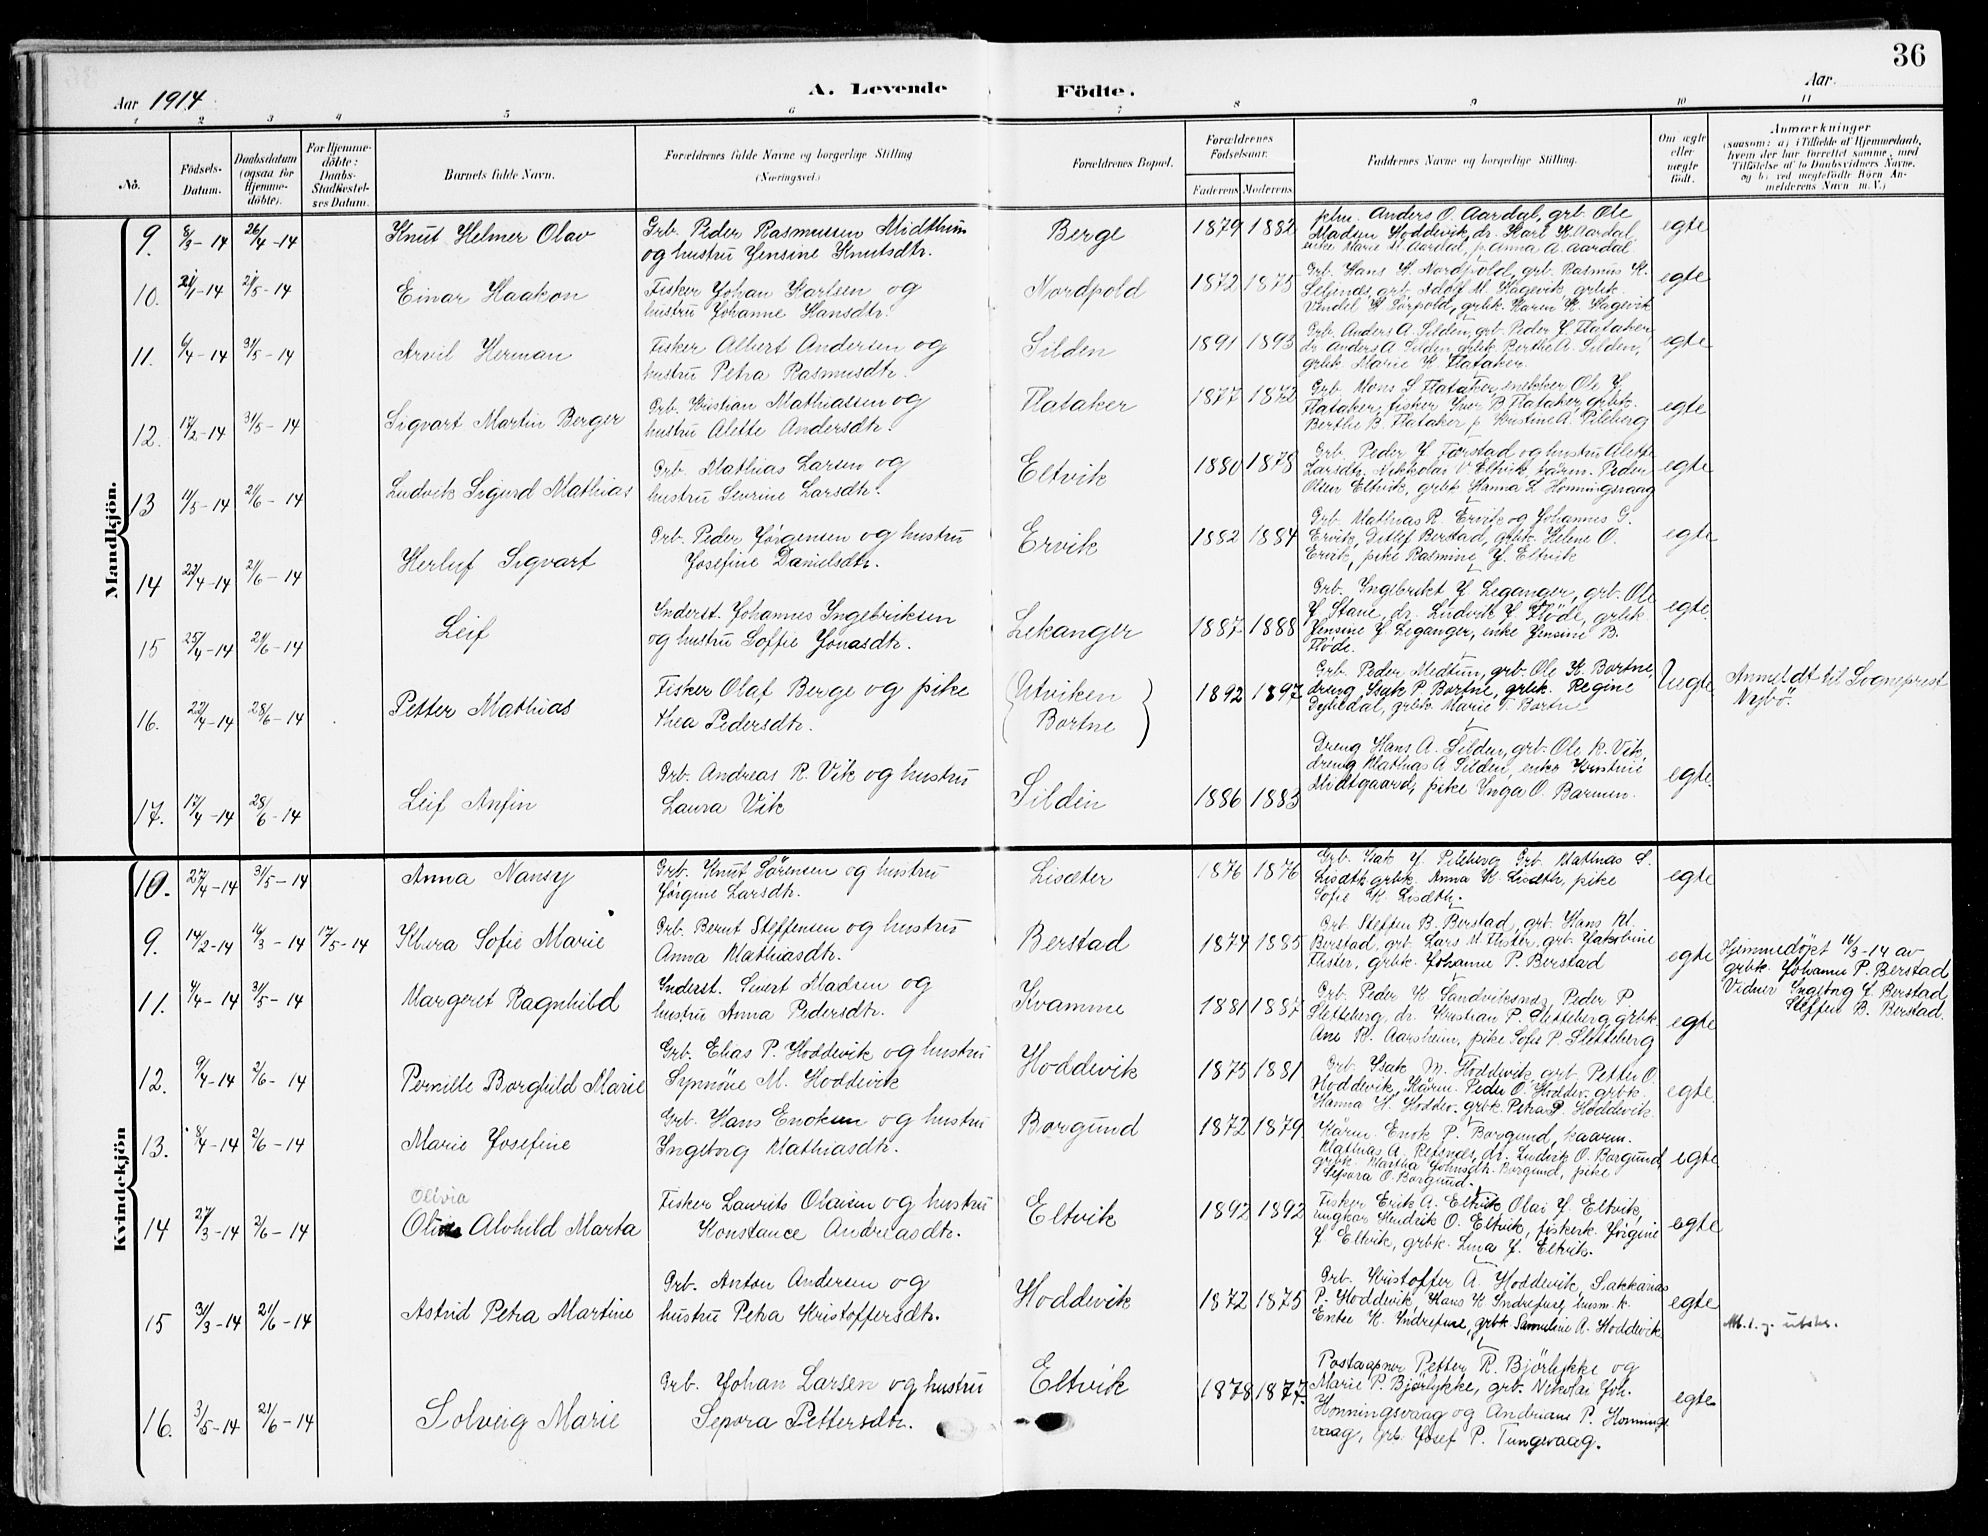 36
Aar 1914
A. Levende Födte.
Aar
1 2 3 4 5 6 7 8 9 10 11
No.
Födsels-Datum.
Daabsdatum (ogsaa for Hjemmedöbte).
For Hjemmedöbte: Daabs-Stadfæstelses Datum.
Barnets fulde Navn.
Forældrenes fulde Navne og borgerlige Stilling (Næringsvei.)
Forældrenes Bopæl.
Forældrenes Födselsaar.
Faderens Moderens
Faddernes Navne og borgerlige Stilling.
Om ægte eller uægte födt.
Anmærkninger
(saasom: a) i Tilfælde af Hjemmedaab, hvem der har forrettet samme, med Tilföielse af to Daabsvidners Navne, og b) ved uægtefödte Börn Anmelderens Navn m. V.)
Mandkjön.
9. 8/3-14 26/4-14 Knut Helmer Olav
Grb. Peder Rasmussen Midthun
og hustru Jensine Knutsdtr.
Berge 1879 1882
Anders O. Aardal, grb. Ole
Madsen Hoddevik, dr. Karl K. Aardal,
enke Marie M. Aardal, p. Anna A. Aardal
egte
10. 21/1-14 2/5-14 Einar Haakon
Fisker Johan Karlsen og
hustru Johanne Hansdtr.
Nordpold 1872 1875
Grb. Hans K. Nordpold, grb. Rasmus K.
Seljenes, grb. Adolf M. Hagevik, grbk.
Vendel K. Sørpold, grbk. Karen K. Hagevik
egte
11. 9/4-14 31/5-14 Arvil Herman
Fisker Albert Andersen og
hustru Petra Rasmusdtr.
Silden 1891 1893
Grb. Anders A. Silden, grb. Peder J. Flataker,
dr. Anders A. Silden, grbk. Berthe A. Silden,
grbk Marie K. Flataker.
egte
12. 17/2-14 31/5-14 Sigvart Martin Berger
Grb. Kristian Mathiassen og
hustru Alette Andersdtr.
Flataker 1877 1872
Grb. Mons S. Flataker, snekker Ole J.
Flataker, fisker Iver B. Flataker, grbk.
Berthe B. Flataker p. Kristine A. Pileberg
egte
13 11/5-14 21/6-14 Ludvik Sigurd Mathias
Grb. Mathias Larsen og
hustru Severine Larsdtr.
Eltvik 1880 1878
Grb. Peder J. Förstad og hustru Aletse
Larsdtr, Nikkolai V Eltvik kårm. Peder
Olsen Eltvik, grbk Hanna L Honningsvaag
egte
14 22/4-14 21/6-14 Herluf Sigvart
Grb. Peder Jørgensen og hustru
Josefine Danielsdtr.
Ervik 1882 1884
Grb. Mathias R. Ervik og Johannes G.
Ervik, Ditlef Berstad, grbk. Helene O.
Ervik, pike Rasmine J. Eltvik
egte
15 25/4-14 21/6-14 Leif
Inderst. Johannes Ingebriksen
og hustru Soffie Jonasdtr.
Lekanger 1887 1888
Grb. Ingebrikt J. Leganger, grb. Ole
J. Stave, dr. Ludvik J. Flöde, grbk
Jensine J. Leganger, enke Jensine B.
Flöde.
egte.
16. 22/4-14 28/6-14 Petter Mathias
Fisker Olaf Berge og pike
Thea Pedersdtr.
(Utviken
Bortne)
1892 1897
Grb. Peder Medtun, grb. Ole K. Bortne,
dreng Isak P. Bortne, grbk. Regine
Dybedal, grbk Marie T. Bortne
Uegte
Anmeldt til Sogneprest
Nybö.
17. 17/4-14 28/6-14 Leif Anfin
Grb. Andreas R. Vik og hustru
Laura Vik
Silden 1886 1883
Dreng Hans A. Silden, grb. Ole R. Vik,
dreng Mathias A Silden, enke Kristine
Midtgaard, pike Inga O. Barmen.
egte.
Kvindekjön
10. 27/4-14 31/5-14 Anna Nansy
Grb. Knut Sørensen og hustru
Jørgine Larsdtr.
Lisæter 1876 1876
Grb. Isak J. Pileberg Grb. Mathias S.
Lisæth grbk. Anna K. Lisæth, pike
Sofie K. Lisæth.
egte
9. 14/2-14 16/3-14 17/5-14 Klara Sofie Marie
Grb. Bernt Steffensen og hustru
Anna Mathiasdtr.
Berstad 1874 1885
Grb. Steffen B. Berstad, grb. Hans M.
Berstad, grb. Lars M. Flister, grb. Jakobine
Flister, grbk. Johanne P. Berstad
egte
Hjemmedøpt 16/3-14 av
grbk. Johanne P. Berstad
Vidner Ingeborg J. Berstad
Steffen B. Berstad.
11. 4/4-14 31/5-14 Margeret Ragnhild
Inderst. Sivert Madsen og
hustru Anna Pedersdtr.
Kvamme 1881 1887
Grb. Peder K. Sandviksnes, Peder P.
Sletteberg, dr. Kristian P. Sletteberg grbk.
Ane M. Aarsheim, pike Sofie P. Sletteberg
egte
12. 9/4-14 2/6-14 Pernille Borghild Marie
Grb. Elias P. Hoddevik og hustru
Synnöve M. Hoddevik
Hoddevik 1875 1881
Grb. Isak M. Hoddevik, grb. Petter O.
Hoddevik, Kårm. Peder O. Hoddev. grbk.
Hanna H. Hoddev. grbk. Petra P. Hoddevik.
egte.
13. 8/4-14 2/6-14 Marie Josefine
Grb. Hans Enoksen og hustru
Ingeborg Mathiasdtr.
Borgund 1872 1879.
Kårm. Enok P. Borgund, kaarm.
Mathias A. Refsnes, dr. Ludvik O. Borgund,
grbk. Martha Johnsdtr. Borgund, pike
Sepora O. Borgund.
egte
14 27/3-14 2/6-14 Olivia
Alvhild Marta
Fisker Laurits Olaisen og hustru
Konstance Andreasdtr.
Eltvik 1892 1892
Fisker Erik A. Eltvik Olai J. Eltvik,
ungkar Hendrik O. Eltvik, fiskerk. Jørgine
J. Eltvik, grbk. Lina J. Eltvik.
egte
15 31/3-14 21/6-14 Astrid Petra Martine
Grb. Anton Andersen og
hustru Petra Kristoffersdtr.
Hoddevik 1872 1875
Grb. Kristoffer A. Hoddevik, Sakkarias
P. Hoddevik, Hans K. Indrefure, husm. k.
K. Indrefure, grbk Samuline A. Hoddevik
egte
16. 3/5-14 21/6-14 Solveig Marie
Grb. Johan Larsen og hustru
Sepora Pettersdtr.
Eltvik 1878 1877.
Postaapner Petter R. Björlykke og
Marie P. Björlykke, grb. Nikolai Joh.
Honningsvaag og Andriane P. Honnings-
vaag, Grb. Josef P. Tungevaag.
egte.